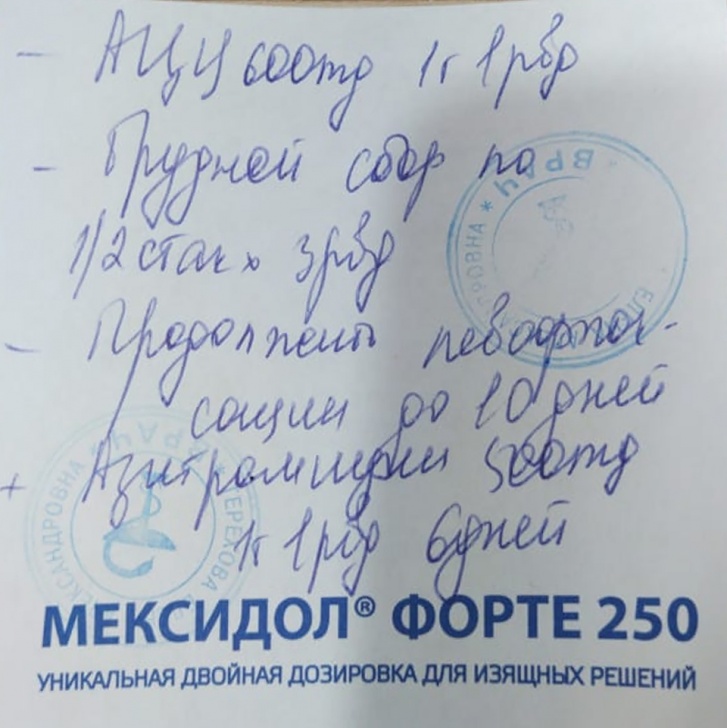 - АЦЦ 600mg 1т 1рвд
- Грудной сбор по
1/2 стак x 3рвд
- Продолжить левофлок-
сацин до 10 дней
+ Азитромицин 500mg
1т 1рвд 6 дней
ВРАЧ *
ВРАЧ * ТЕРЕХОВА
ЕКСАНДРОВНА
МЕКСИДОЛ® ФОРТЕ 250
УНИКАЛЬНАЯ ДВОЙНАЯ ДОЗИРОВКА ДЛЯ ИЗЯЩНЫХ РЕШЕНИЙ